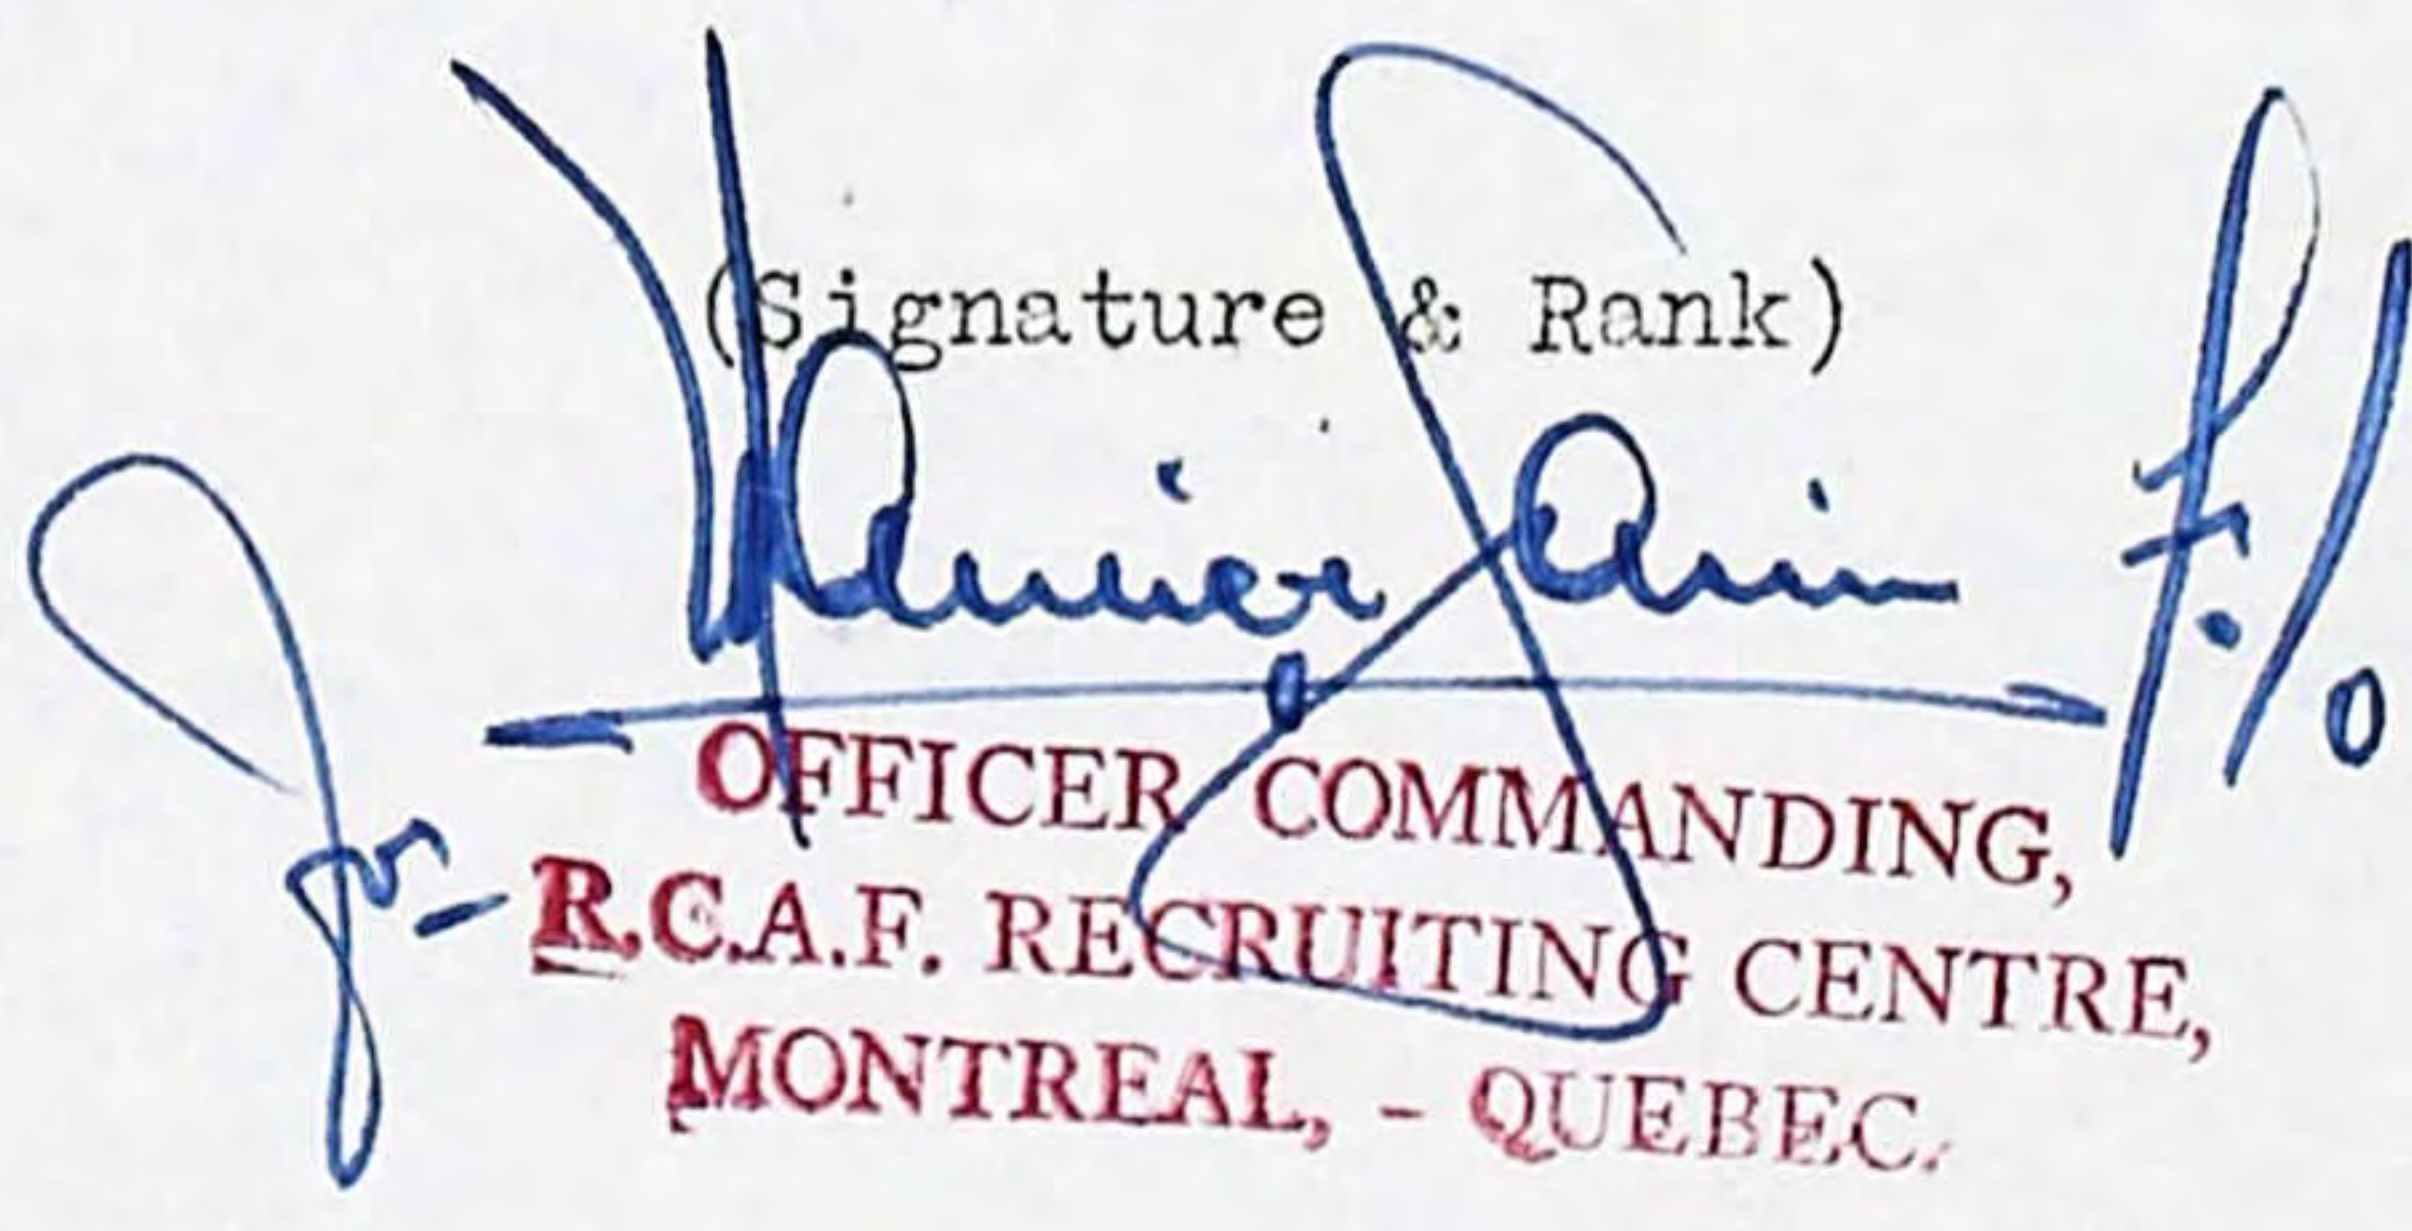 (Signature & Rank)
F/O
for - OFFICER COMMANDING,
R.C.A.F. RECRUITING CENTRE,
MONTREAL, - QUEBEC.